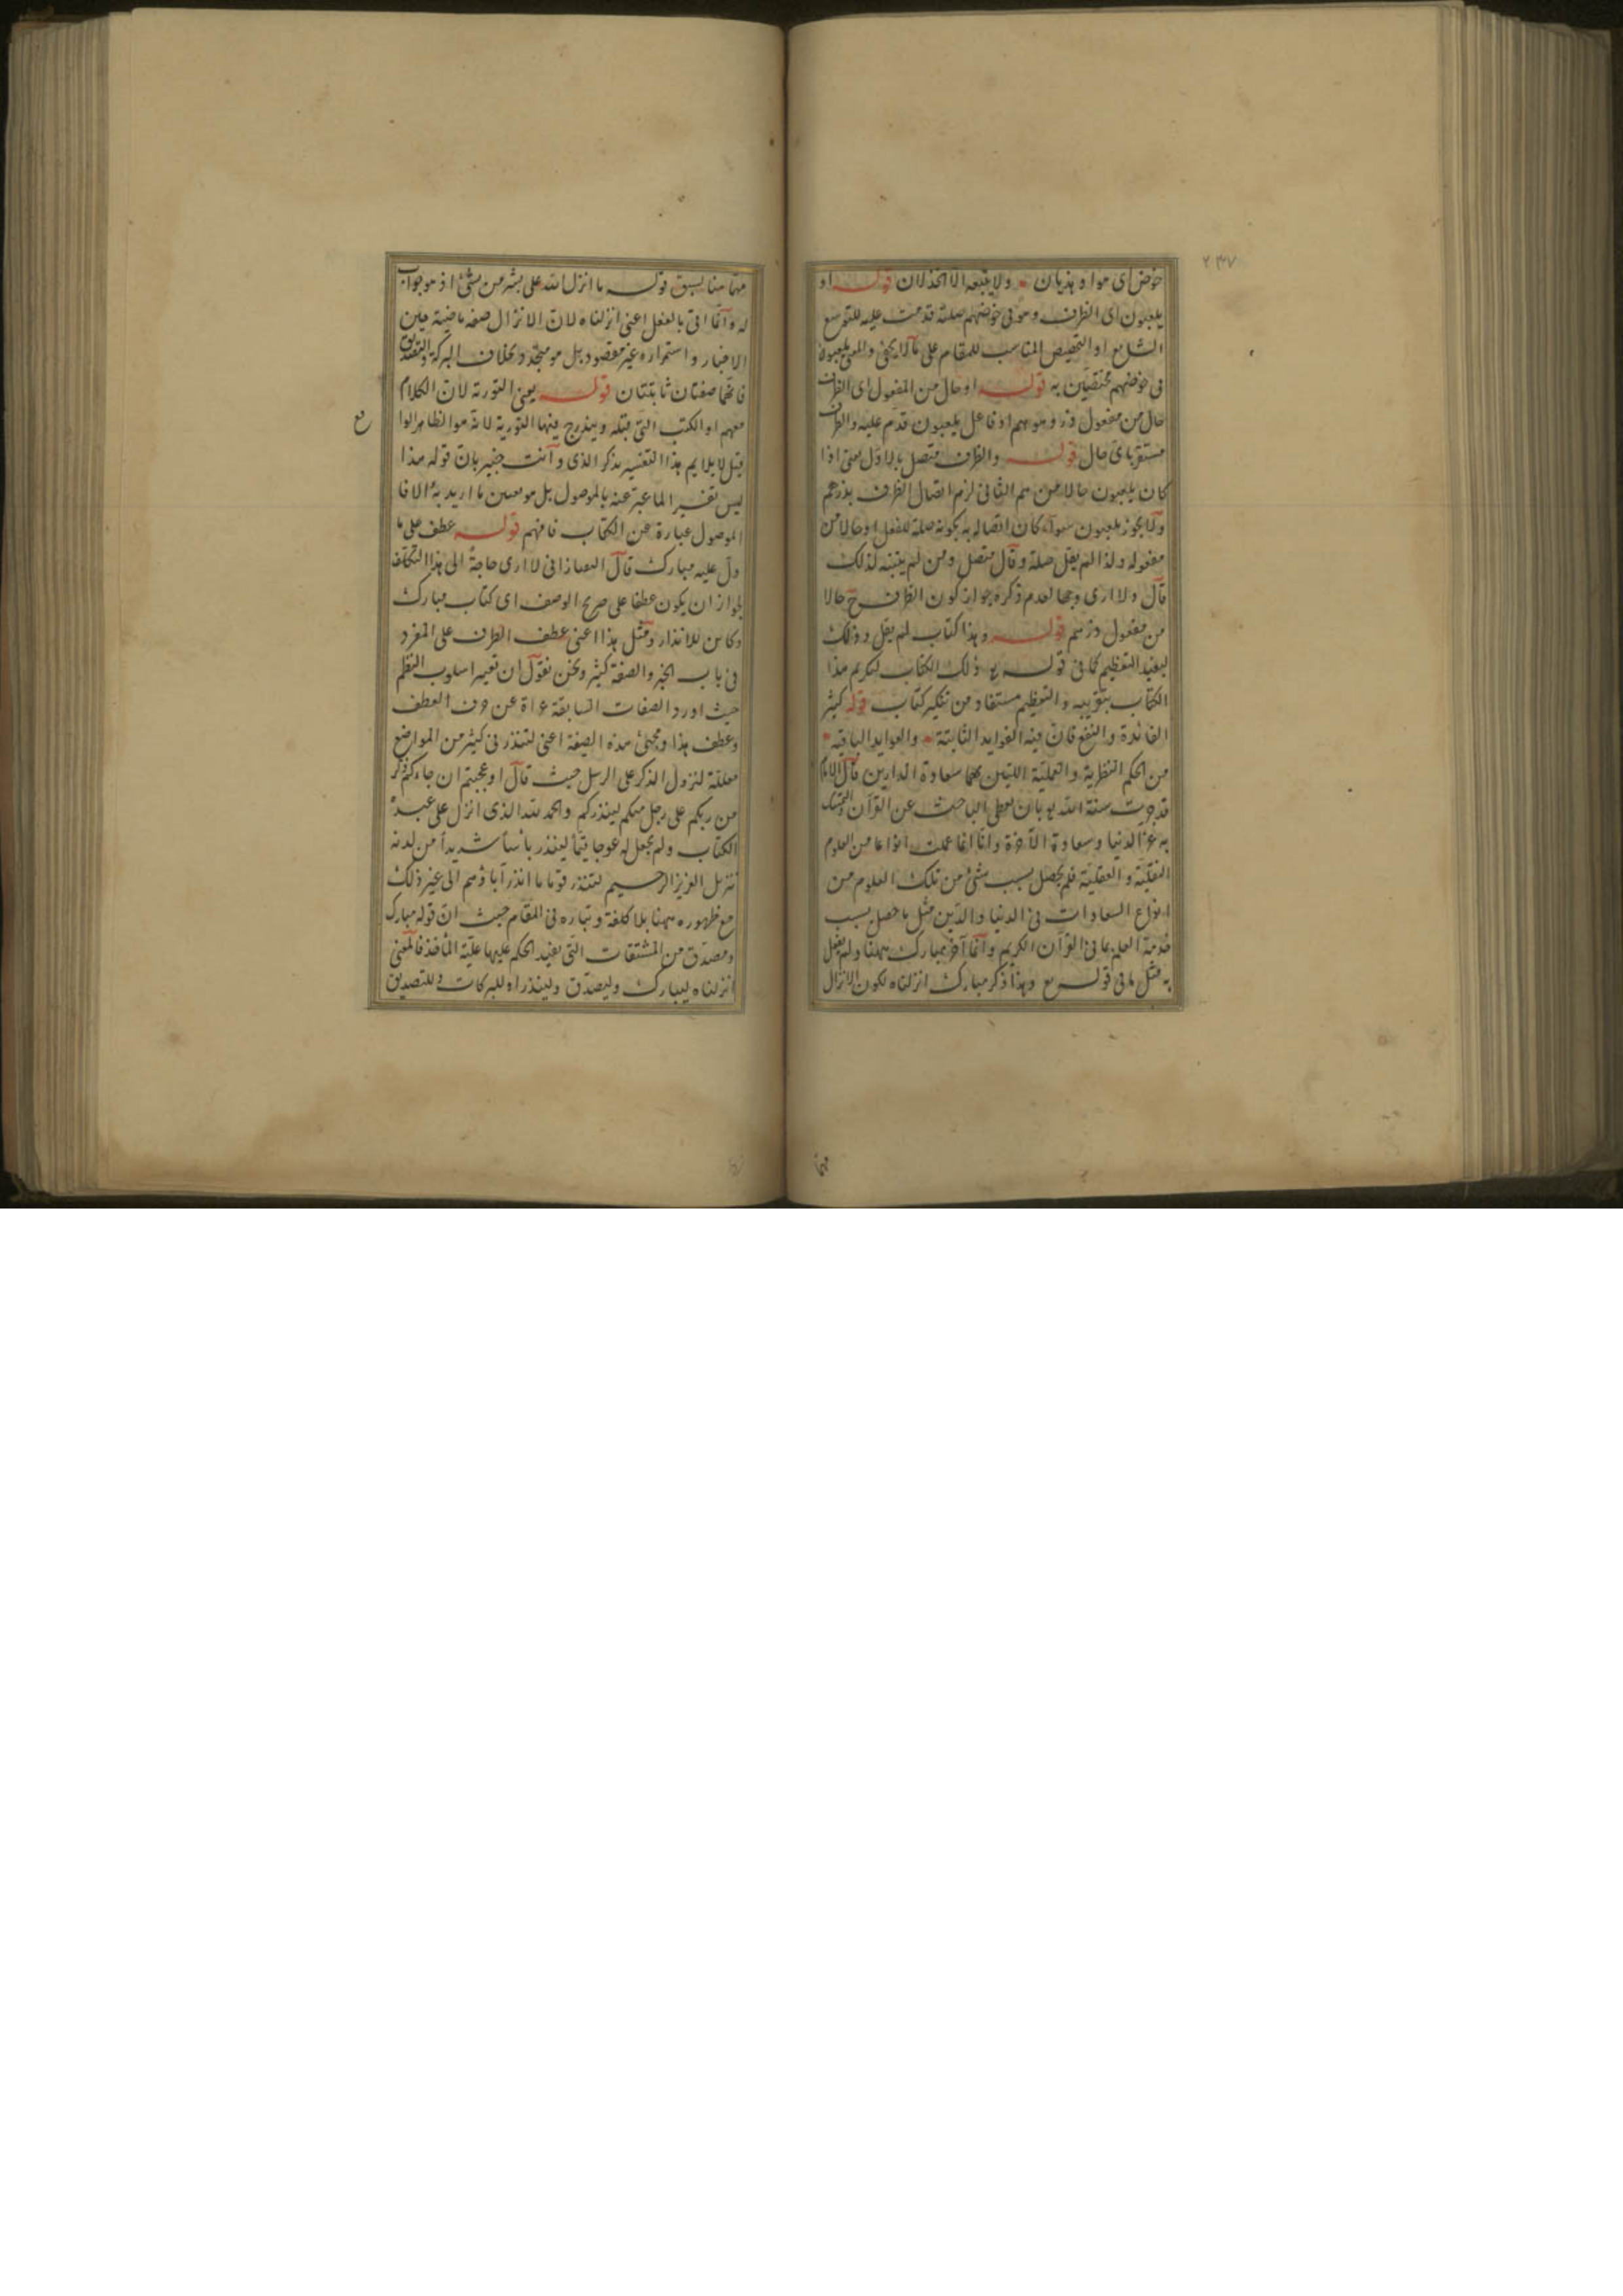 ٢٣٧
خوض اى هوا وهذيان ولا يتبعه الا الخذلان قوله او
يلعبون اى الظرف وهو فى خوضهم صلته قدمت عليه للتوسع
الشايع او التخصيص المناسب للمقام على ما لا يخفى والمعنى يلعبون
فى خوضهم مختصين به قوله او حال من المفعول اى الظرف
حال من مفعول ذر وهو هم او فاعل يلعبون قدم عليه والظرف
مستقر باى حال قوله والظرف متصل بالاول يعنى اذا
كان يلعبون حالا من هم الثانى لزم اتصال الظرف بذرهم
ولا يجوز بيلعبون سواء كان اتصاله به بكونه صلة للفعل او حالا من
مفعوله ولذا لم يقل صلة وقال متصل ومن لم يتنبه لذلك
قال ولا ارى وجها لعدم ذكره جواز كون الظرف ح حالا
من مفعول ذرهم قوله وهذا كتاب لم يقل وذلك
ليفيد التعظيم كما فى قوله تع ذلك الكتاب لتكريم هذا
الكتاب بتقريبه والتعظيم مستفاد من تنكير كتاب قوله كثير
الفائدة والنفع فان فيه الفوايد الثابتة والعوايد الباقيه
من الحكم النظرية والعملية اللتين بهما سعادة الدارين قال الامام
قد جرت سنة الله تع بان يعطى الباحث عن القرآن المتمسك
به عز الدنيا وسعادة الآخرة وانا انما عملت انواعا من العلوم
النقلية والعقلية فلم يحصل بسبب شئ من تلك العلوم من
انواع السعادات فى الدنيا والدين مثل ما حصل بسبب
خدمة العلم بما فى القرآن الكريم وانما آخر مبارك ههنا ولم يفعل
به مثل ما فى قوله تع وهذا ذكر مبارك انزلناه لكون الانزال
مهما هنا لسبق قوله ما انزل الله على بشر من شئ اذ هو جواب
له وانما اتى بالفعل اعنى انزلناه لان الانزال صفة ماضية حين
الاخبار واستمراره غير مقصود بل هو متجدد بخلاف البركة والتصديق
فانهما صفتان ثابتتان قوله يعنى التورية لان الكلام
معهم او الكتب التى قبله ويندرج فيها التورية لانه هو الظاهر الوا
قيل لا يلايم هذا التفسير بذكر الذى وانت خبير بان قوله هذا
ليس تفسير الما عبر عنه بالموصول بل هو معين ما اريد به الا فا
الموصول عبارة عن الكتاب فافهم قوله عطف على ما
دل عليه مبارك قال التفتازانى لا ارى حاجة الى هذا التكلف
لجواز ان يكون عطفا على صريح الوصف اى كتاب مبارك
وكاين للانذار ومثل هذا اعنى عطف الظرف على المفرد
فى باب الخبر والصفة كثير ونحن نقول ان تغيير اسلوب النظم
حيث اورد الصفات السابقة عراة عن حرف العطف
وعطف هذا ومجئ هذه الصيغة اعنى لتنذر فى كثير من المواضع
معللة لنزول الذكر على الرسل حيث قال اوعجبتم ان جاءكم ذكر
من ربكم على رجل منكم لينذركم والحمد لله الذى انزل على عبده
الكتاب ولم يجعل له عوجا قيما لينذر بأسا شديدا من لدنه
تنزيل العزيز الرحيم لتنذر قوما ما انذر آباؤهم الى غير ذلك
مع ظهوره ههنا بلا كلفة وتبادره فى المقام حيث ان قوله مبارك
ومصدق من المشتقات التى يفيد الحكم عليها علية المأخذ فالمعنى
انزلناه ليبارك وليصدق ولينذر اه للبركات وللتصديق